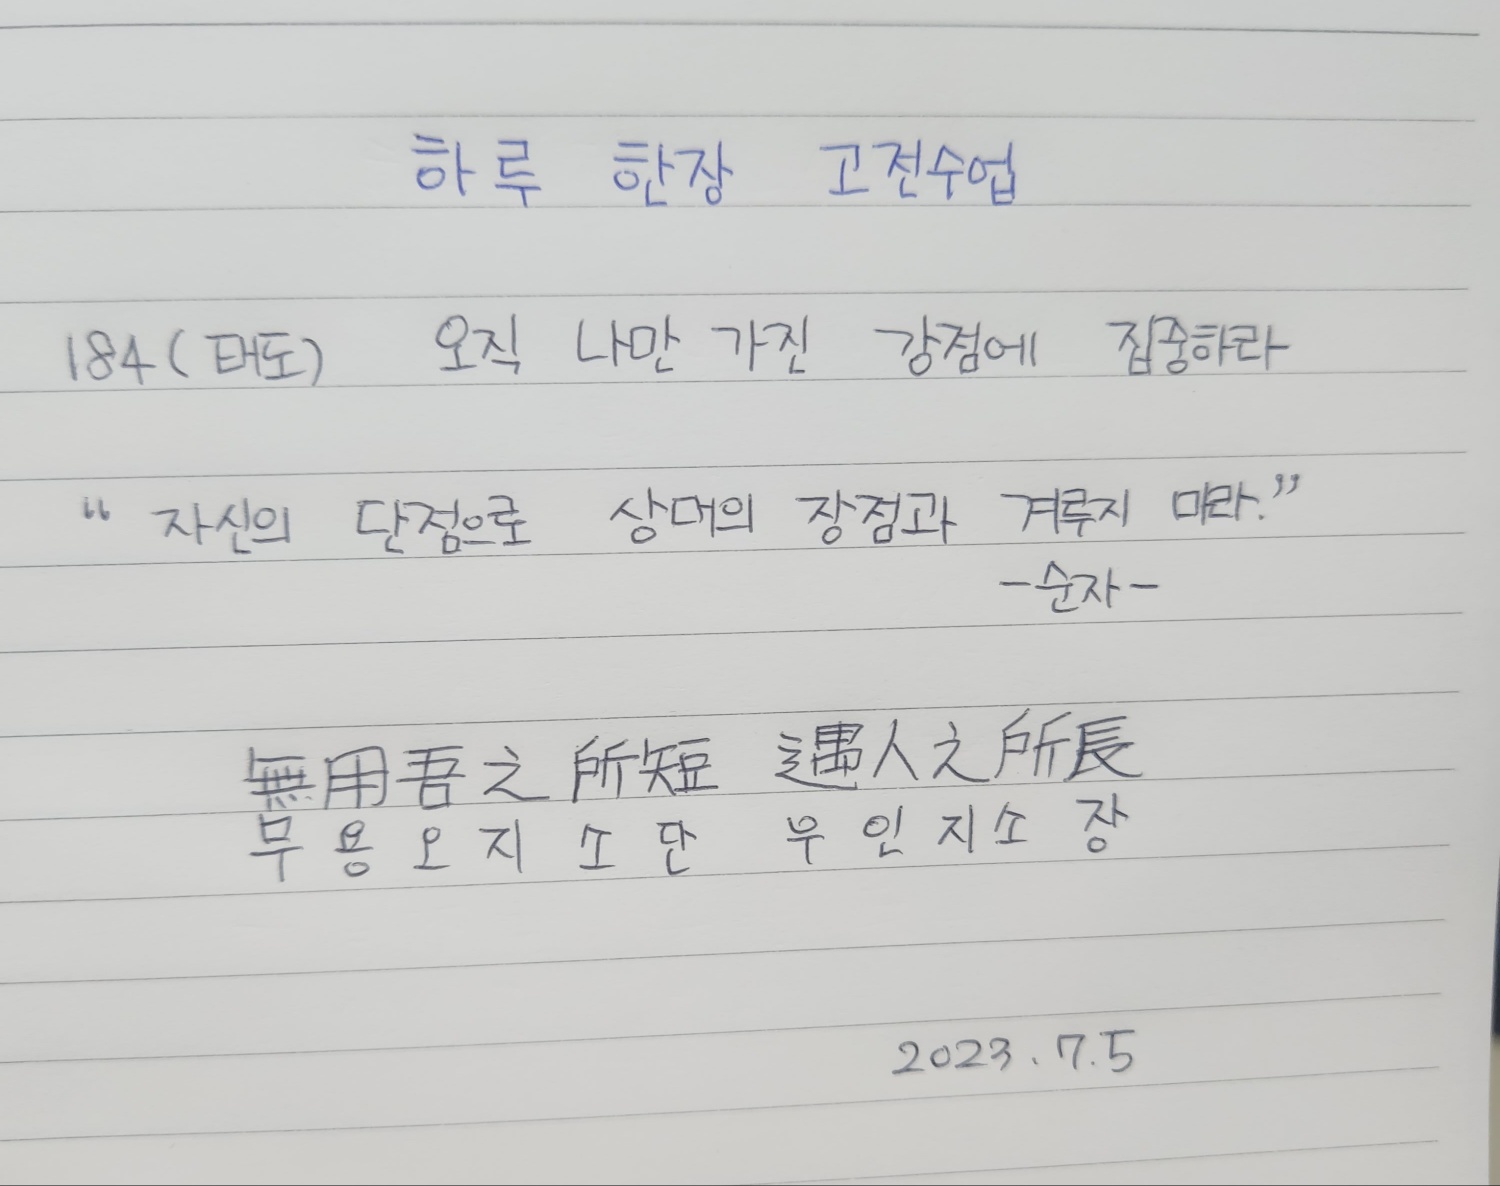 하루 한장 고전수업
184(태도) 오직 나만 가진 강점에 집중하라
“자신의 단점으로 상대의 장점과 겨루지 마라.”
-순자-
無用吾之所短 遇人之所長
무용오지소단 우인지소장
2023.7.5